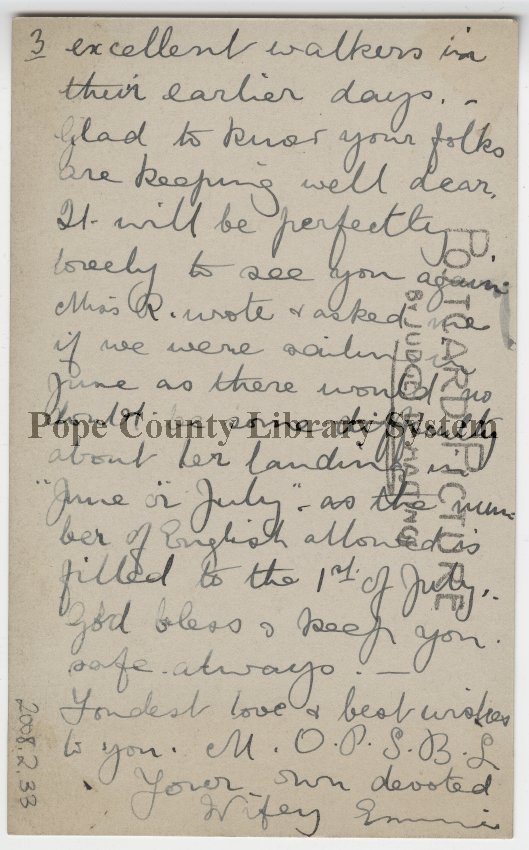 3 excellent walkers in
their earlier days. -
Glad to know your folks
are keeping well dear.
It will be perfectly
lovely to see you again.
Miss R. wrote & asked me
if we were sailing in
June as there would no
doubt be some difficulty
about her landing in
"June or July". as the num-
ber of English allowed is
filled to the 1st. of July..
God bless & keep you.
safe always. —
Fondest love & best wishes
to you. M. O. P. S. B. L
Your own devoted
Wifey Emmie
Pope County Library System
POSTCARD PICTURE
BY JUDGES HASTINGS
2008.2.33